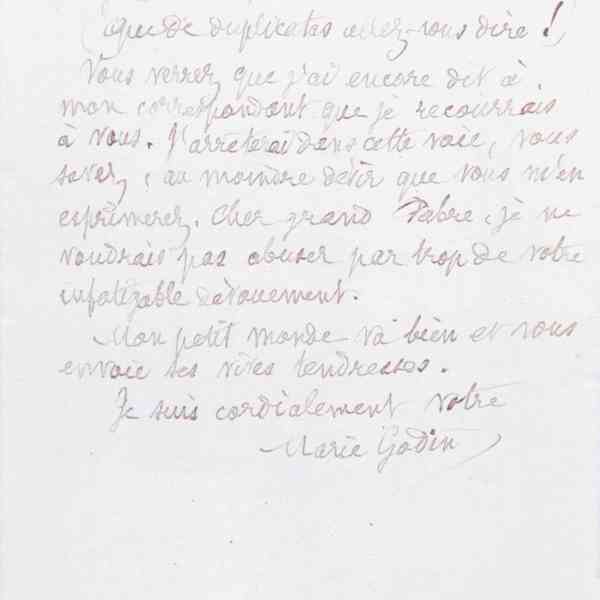 (que de duplicatas allez-vous dire !)
Vous verrez que j'ai encore dit à
mon correspondant que je recourrais
à vous. J'arrêterai dans cette voie, vous
savez, au moindre désir que vous m'en
exprimerez. Cher grand Fabre, je ne
voudrais pas abuser par trop de votre
infatigable dévouement.
Mon petit monde va bien et vous
envoie ses vives tendresses.
Je suis cordialement votre
Marie Godin